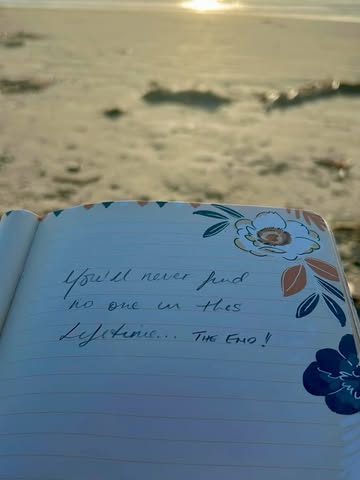 You'll never find
no one in this
Lifetime... THE END!